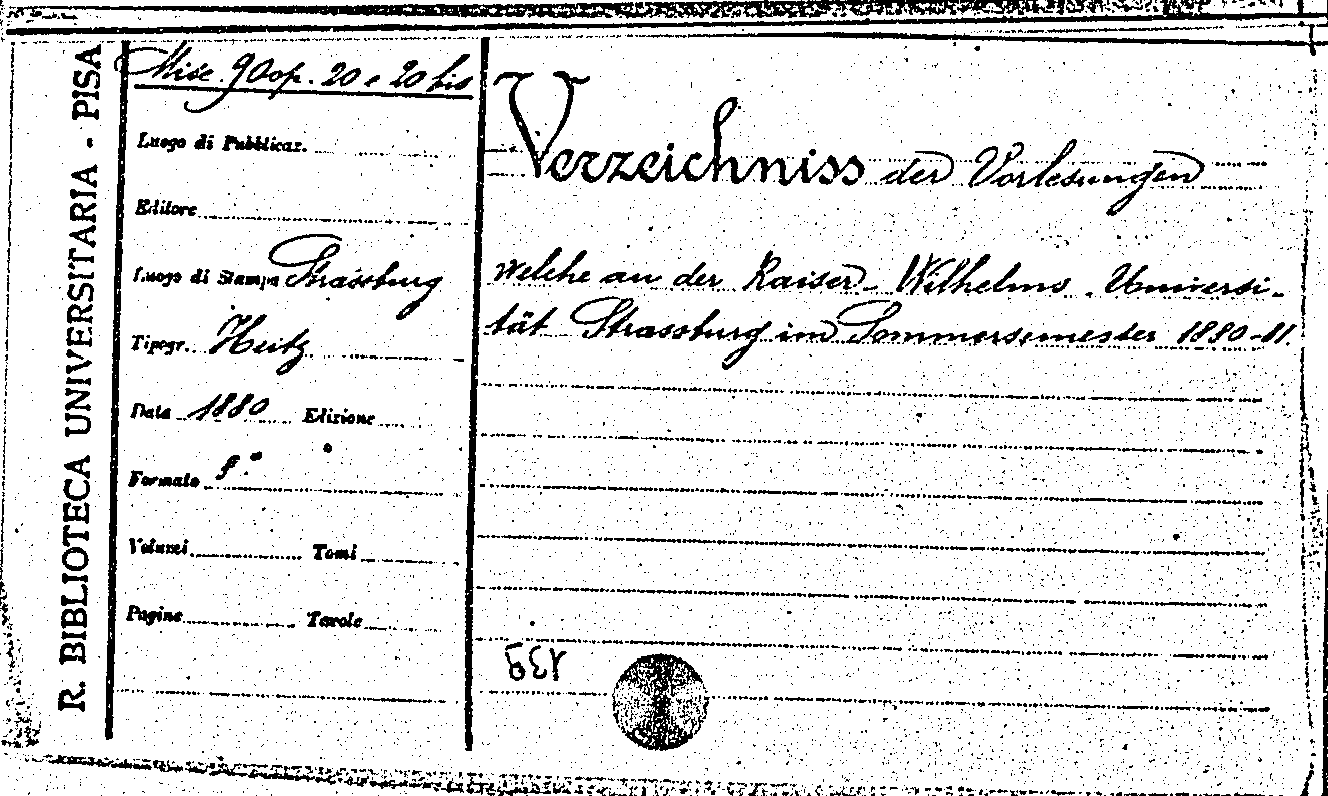 R. BIBLIOTECA UNIVERSITARIA - PISA
Misc. 90 op. 20 e 20 bis
Luogo di Pubblicaz.
Editore
Luogo di Stampa Strassburg
Tipogr. Heitz
Data 1880 Edizione
Formato f.°
Volumi Tomi
Pagine Tavole
Verzeichniss der Vorlesungen
welche an der Kaiser-Wilhelms Universi-
tät Strassburg im Sommersemester 1880-81.
139